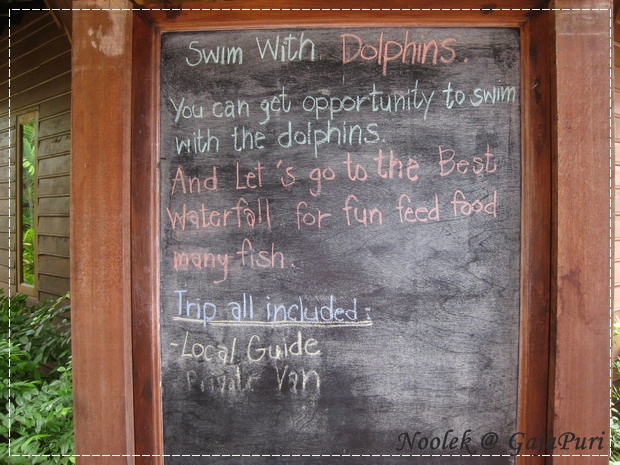 Swim With Dolphins.
You can get opportunity to swim
with the dolphins.
And Let 's go to the Best
Waterfall for fun feed food
many fish.
Trip all included:
-Local Guide
Private Van
Noolek @ GajaPuri